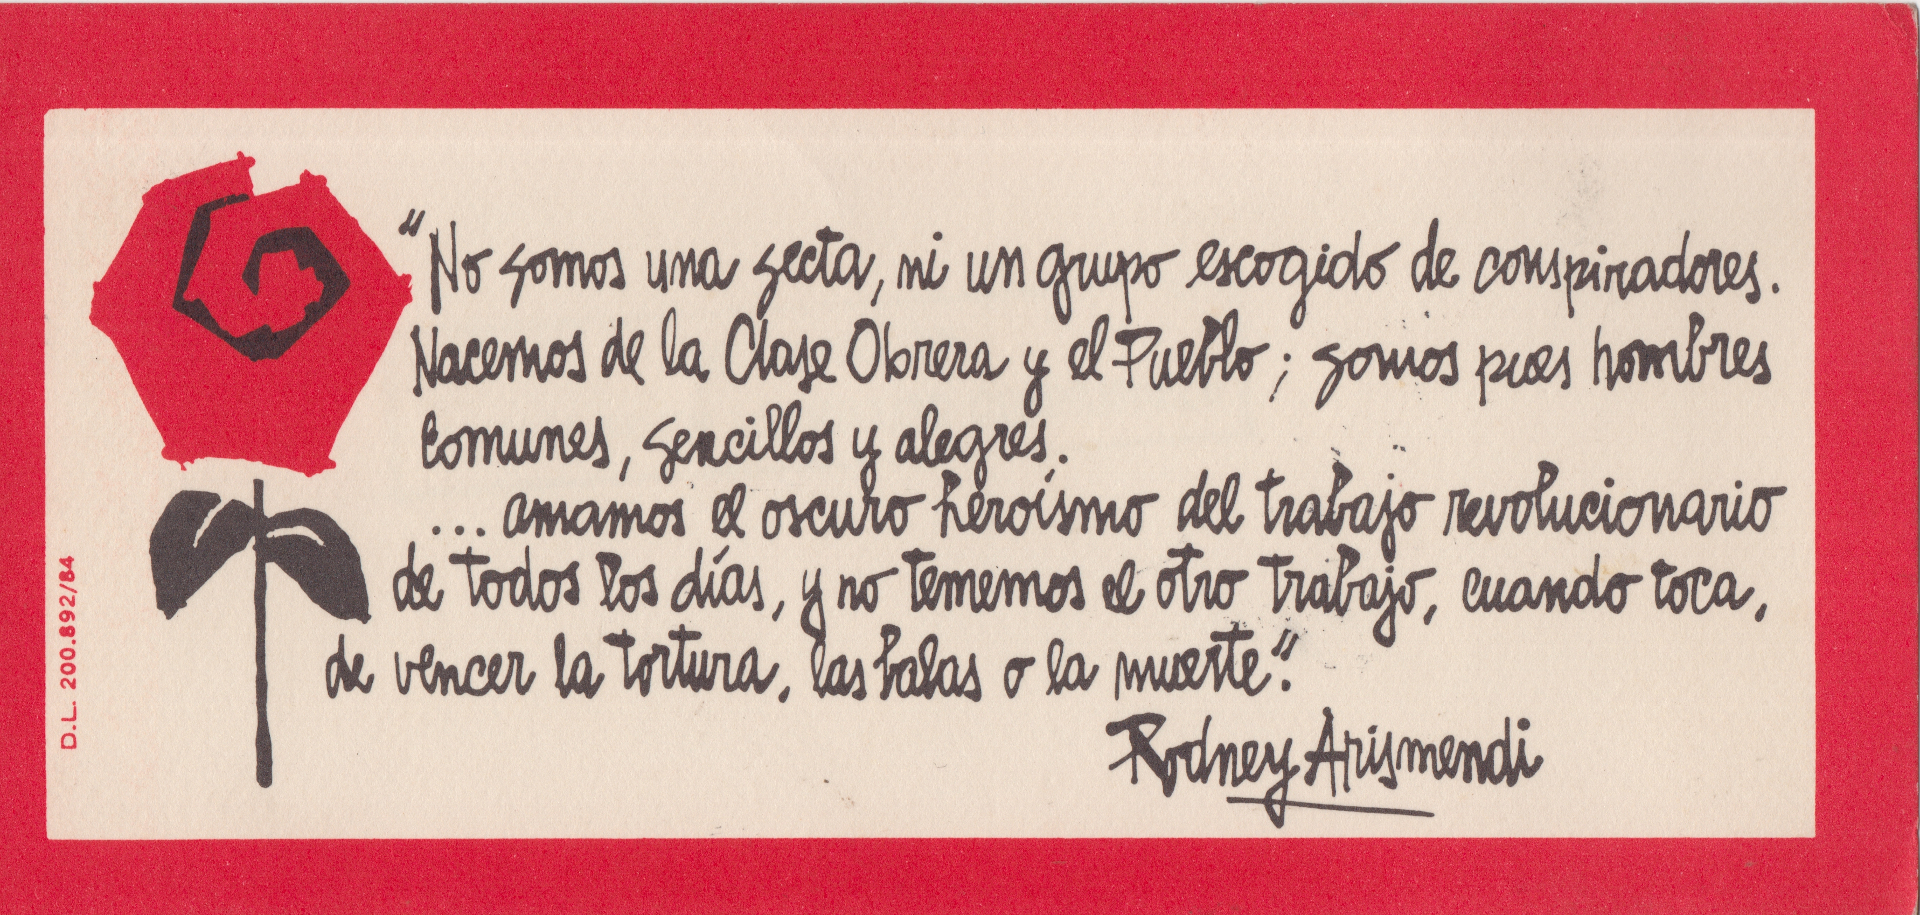 "No somos una secta, ni un grupo escogido de conspiradores.
Nacemos de la Clase Obrera y el Pueblo; somos pues hombres
comunes, sencillos y alegres.
... amamos el oscuro heroísmo del trabajo revolucionario
de todos los días, y no tememos el otro trabajo, cuando toca,
de vencer la tortura, las balas o la muerte".
Rodney Arismendi
D.L. 200.892/84